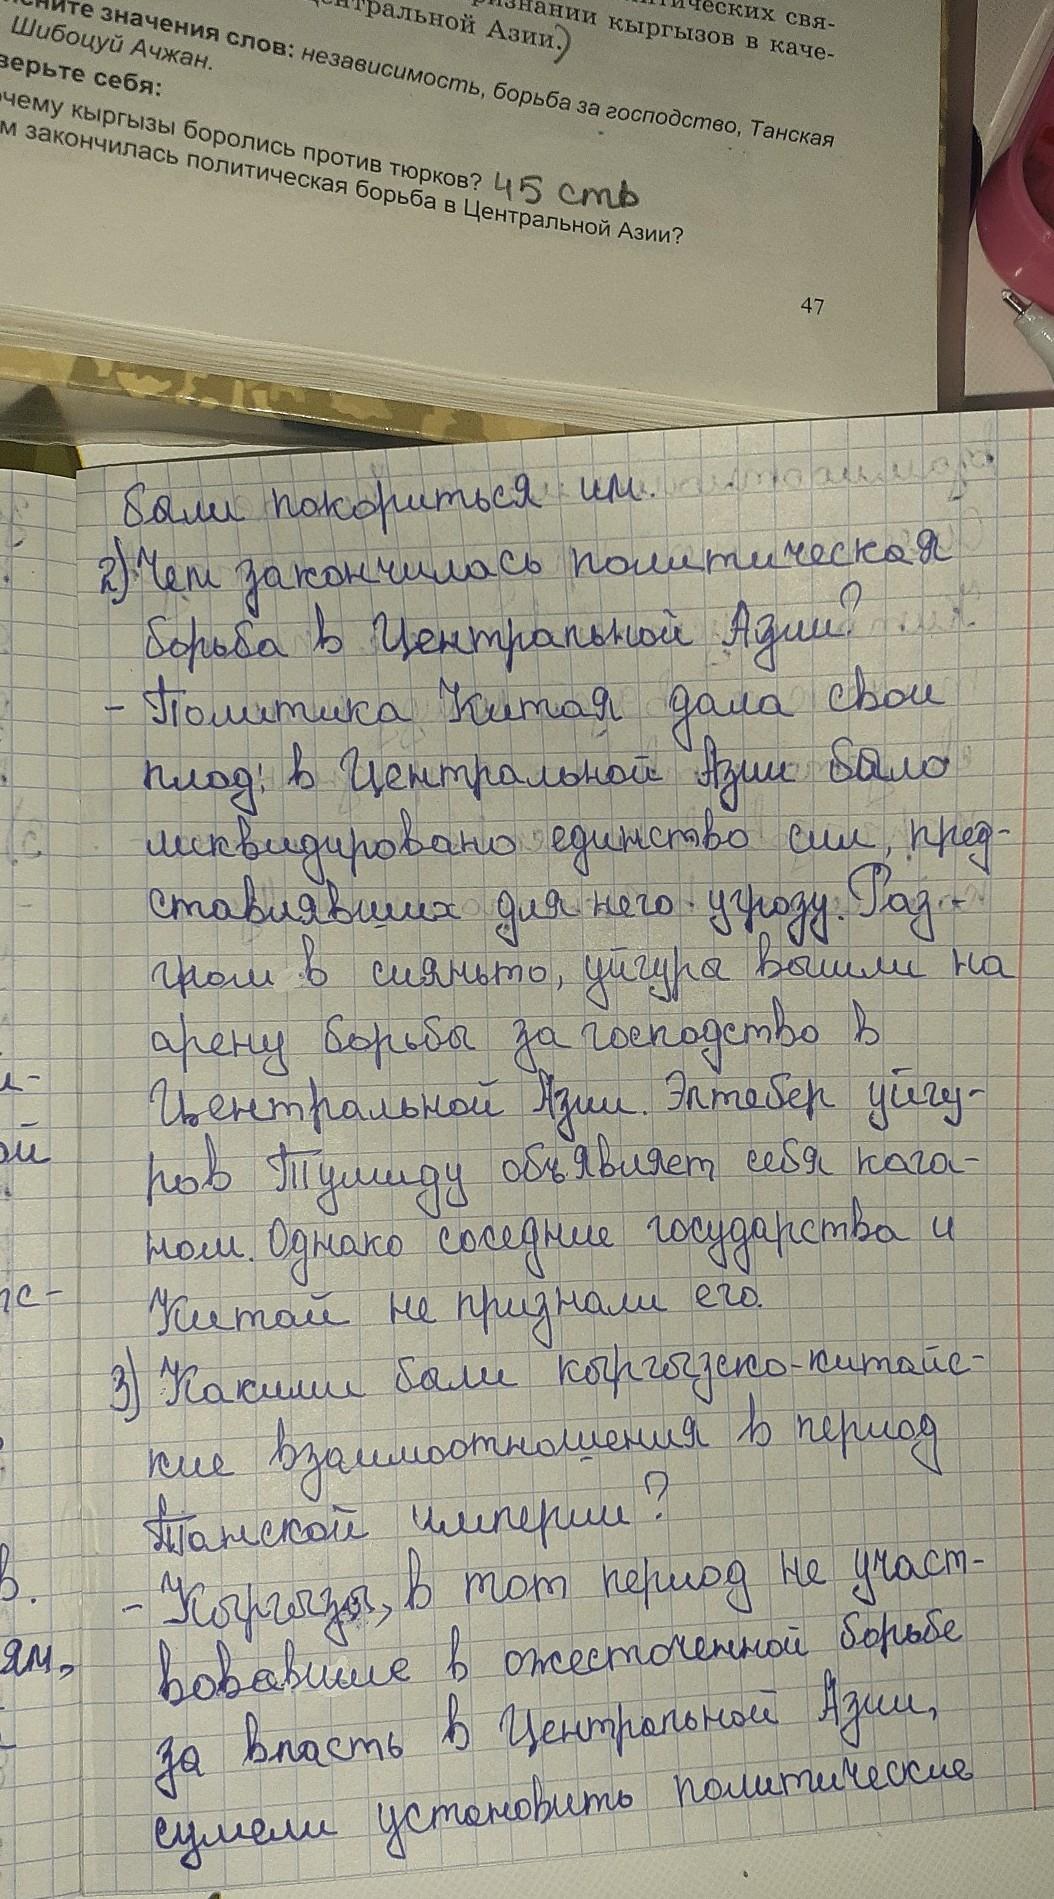 тических свя-
ризнании кыргызов в каче-
Центральной Азии.)
ясните значения слов: независимость, борьба за господство, Танская
Шибоцуй Ачжан.
верьте себя:
очему кыргызы боролись против тюрков? 45 стр
м закончилась политическая борьба в Центральной Азии?
47
были покориться им.
2) Чем закончилась политическая
борьба в Центральной Азии?
- Политика Китая дала свои
плод: в Центральной Азии было
ликвидировано единство сил, пред-
ставлявших для него угрозу. Раз-
гром в сяньто, уйгуры вышли на
арену борьбы за господство в
Центральной Азии. Элтебер уйгу-
ров Тумиду объявляет себя кага-
ном. Однако соседние государства и
Китай не признали его.
3) Какими были кыргызско-китайс-
кие взаимоотношения в период
Танской империи?
- Кыргызы, в тот период не участ-
вовавшие в ожесточенной борьбе
за власть в Центральной Азии,
сумели установить политические